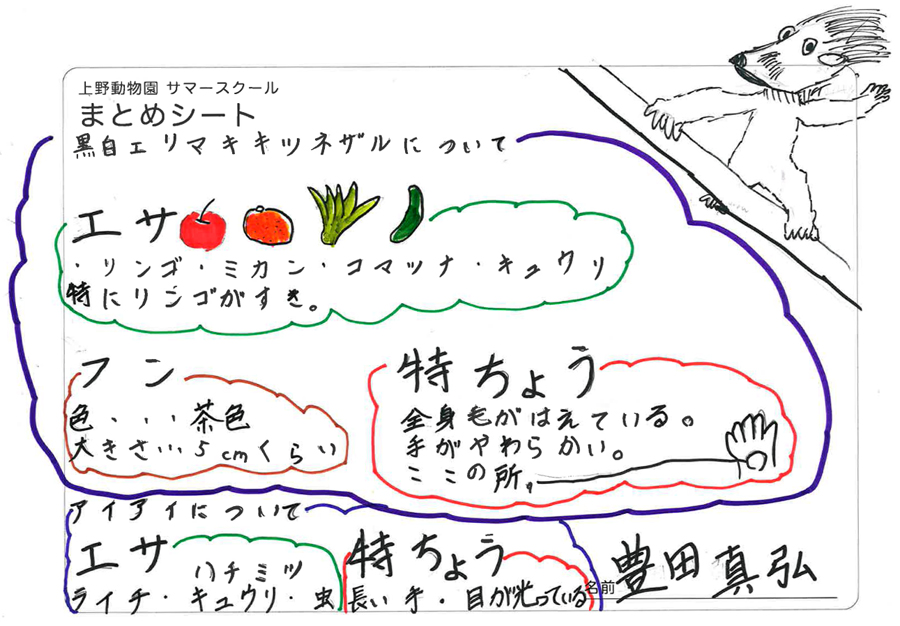 上野動物園 サマースクール
まとめシート
黒白エリマキキツネザルについて
エサ
・リンゴ・ミカン・コマツナ・キュウリ
特にリンゴがすき。
フン
色・・・茶色
大きさ…5cmくらい
特ちょう
全身毛がはえている。
手がやわらかい。
ここの所。
アイアイについて
エサ
ハチミツ
ライチ・キュウリ・虫
特ちょう
長い手・目が光っている
名前 豊田真弘